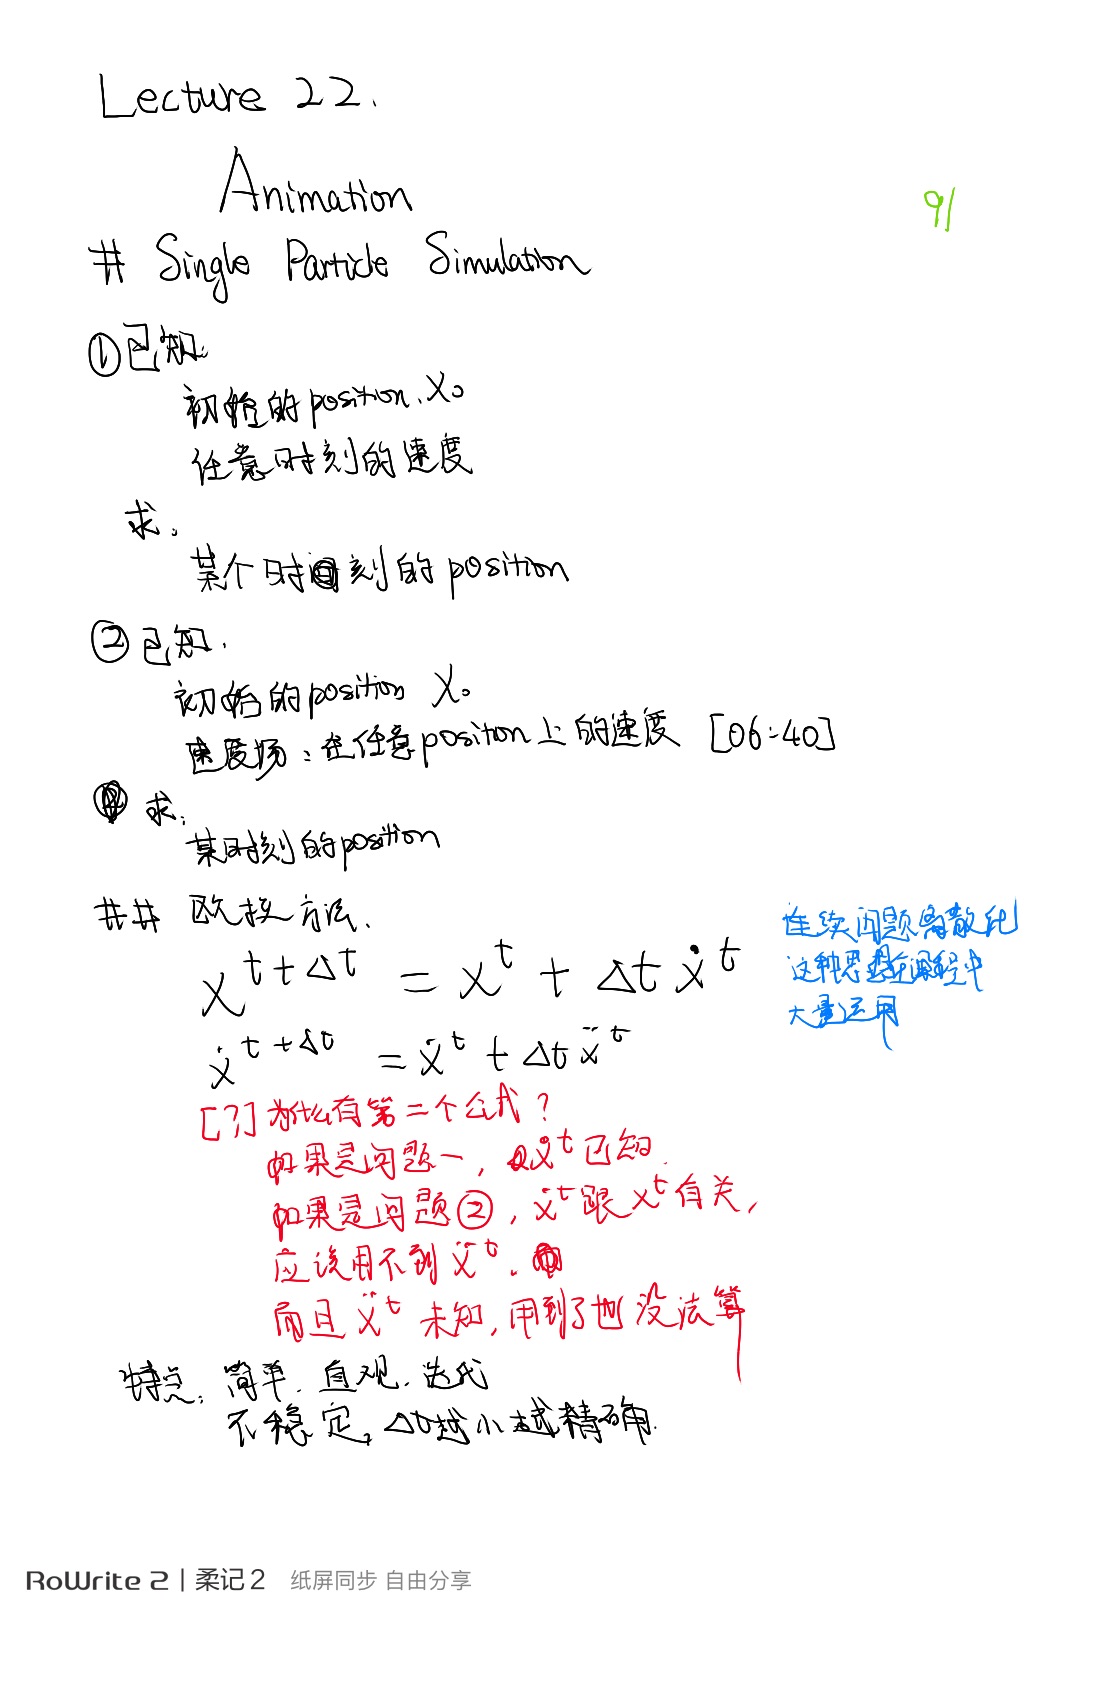 Lecture 22.
Animation
91
# Single Particle Simulation
①已知:
初始的position. X₀
任意时刻的速度
求:
某个时刻的position
②已知.
初始的position X₀
速度场:在任意position上的速度 [06:40]
求:
某时刻的position
## 欧拉方法.
连续问题离散化
这种思想在课程中
大量运用
x^{t+Δt} = x^t + Δt ẋ^t
ẋ^{t+Δt} = ẋ^t + Δt ẍ^t
[?]为什么有第二个公式?
如果是问题一, ẋ^t 已知.
如果是问题②, ẋ^t 跟 x^t 有关,
应该用不到 ẍ^t.
而且 ẍ^t 未知, 用到了也没法算
特点: 简单. 直观. 迭代
不稳定, Δt越小越精确.
RoWrite 2 | 柔记2 纸屏同步 自由分享